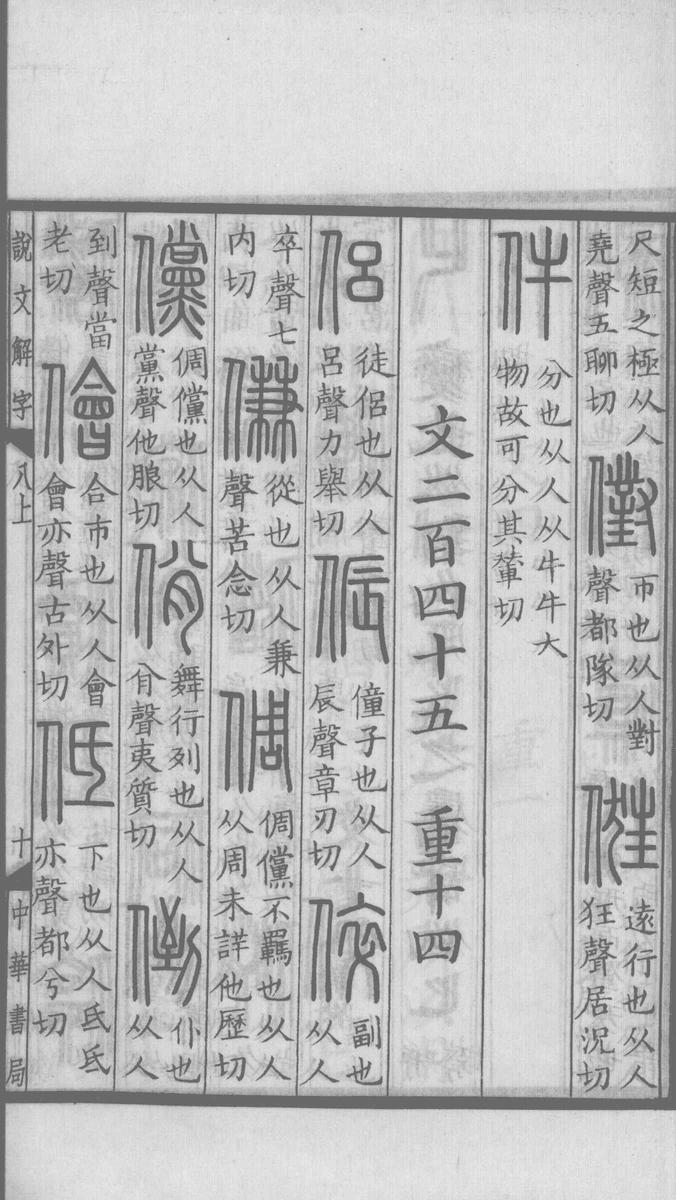 尺短之極从人
堯聲五聊切
㒑
帀也从人對
聲都隊切
俇
遠行也从人
狂聲居況切
件
分也从人从牛牛大
物故可分其輦切
文二百四十五 重十四
侶
徒侶也从人
呂聲力舉切
侲
僮子也从人
辰聲章刃切
倅
副也
从人
卒聲七
内切
傔
從也从人兼
聲苦念切
倜
倜儻不羈也从人
从周未詳他歷切
儻
倜儻也从人
黨聲他朖切
佾
舞行列也从人
㕯聲夷質切
倒
仆也
从人
到聲當
老切
儈
合市也从人會
會亦聲古外切
低
下也从人氐氐
亦聲都兮切
說文解字 八上 十 中華書局